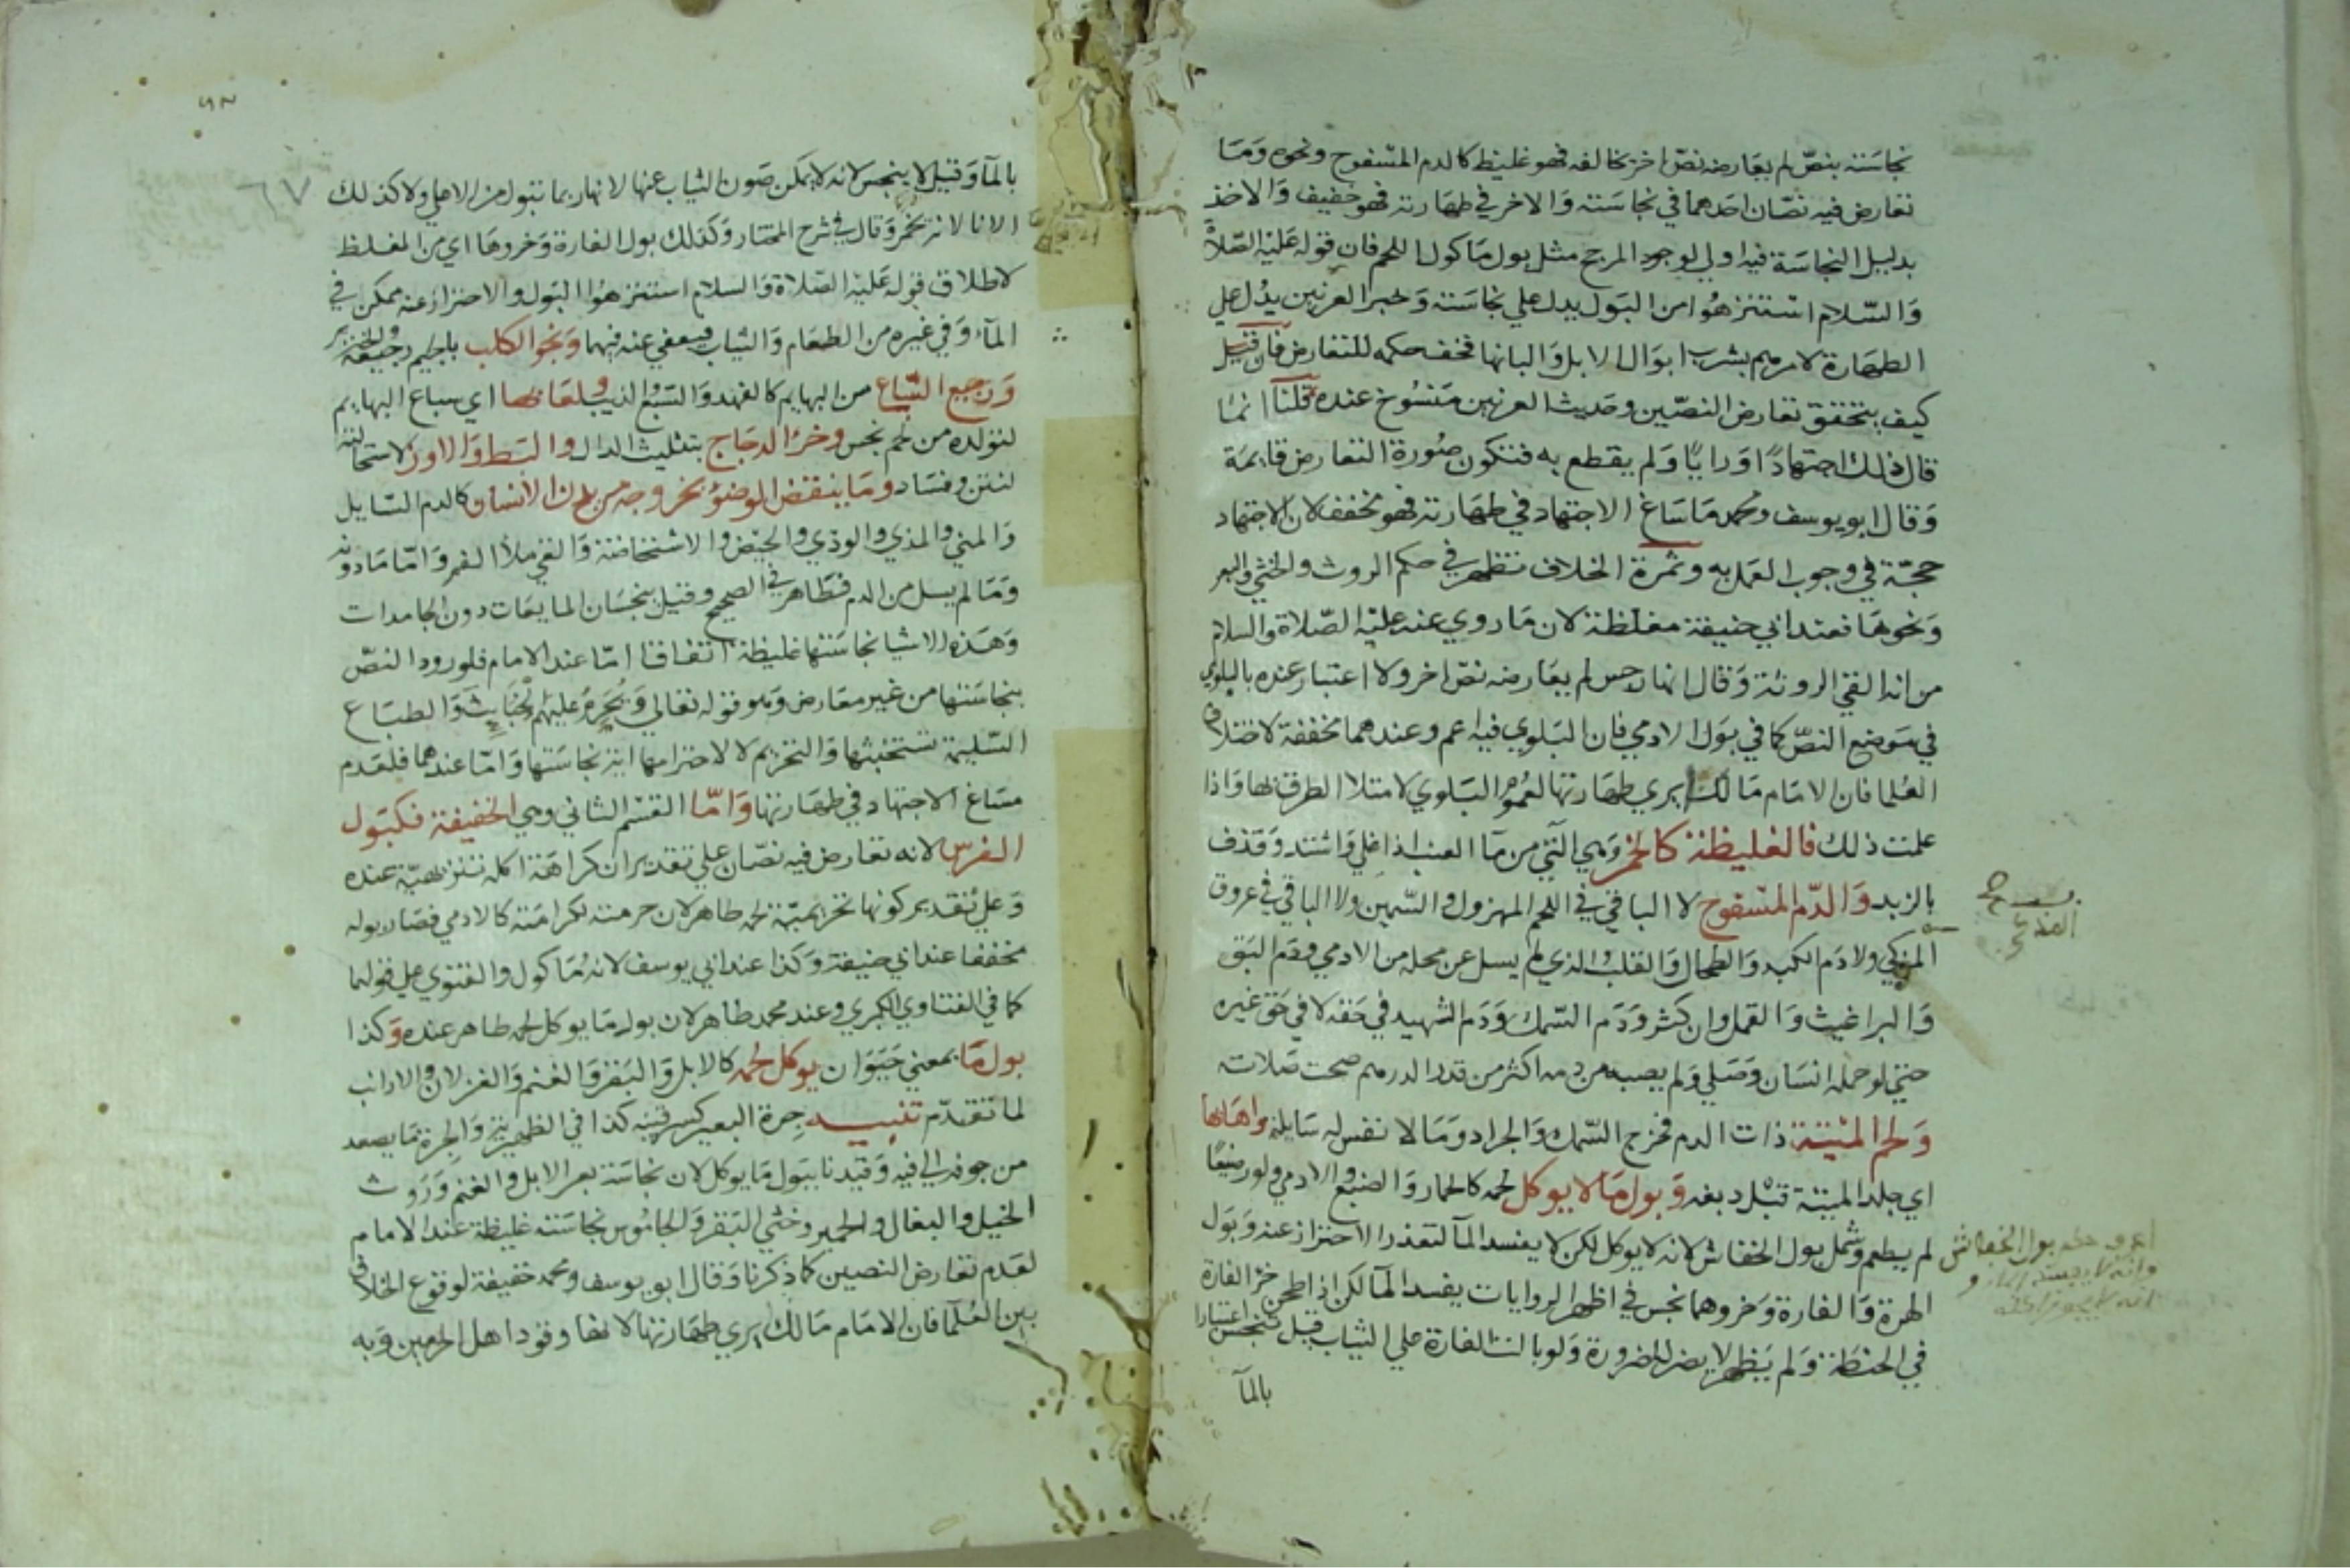 نجاسته بنص لم يعارضه نص اخر يخالفه فهو غليظ كالدم المسفوح ونحوه وما
تعارض فيه نصان احدهما في نجاسته والاخر في طهارته فهو خفيف والاخذ
بدليل النجاسة فيه اولي لوجود المرجح مثل بول ماكول اللحم فان قوله عليه الصلاة
والسلام استنزهوا من البول يدل علي نجاسته وخبر العرنيين يدل علي
الطهارة لامرهم بشرب ابوال الابل والبانها فخفف حكمه للتعارض فان قيل
كيف يتحقق تعارض النصين وحديث العرنيين منسوخ عنده قلنا انما
قال ذلك اجتهادا ورايا ولم يقطع به فتكون صورة التعارض قايمة
وقال ابو يوسف ومحمد ما ساغ الاجتهاد في طهارته فهو مخفف لان الاجتهاد
حجة في وجوب العمل به وثمرة الخلاف تظهر في حكم الروث والخثي والبعر
ونحوها فعند ابي حنيفة مغلظة لان ما روي عنه عليه الصلاة والسلام
من انه القي الروثة وقال انها رجس لم يعارضه نص اخر ولا اعتبار عنده بالبلوي
في موضع النص كما في بول الادمي فان البلوي فيه اعم وعندهما مخففة لاختلاف
العلما فان الامام مالك يري طهارتها لعموم البلوي لامتلا الطرق بها واذا
علمت ذلك فالغليظة كالخمر وهي التي من ما العنب اذا غلي واشتد وقذف
بالزبد والدم المسفوح لا الباقي في اللحم المهزول والسمين ولا الباقي في عروق
المذكي ولا دم الكبد والطحال والقلب والذي لم يسل عن محله من الادمي ودم البق
والبراغيث والقمل وان كثر ودم السمك ودم الشهيد في حقه لا في حق غيره
حتي لو حمله انسان وصلي ولم يصبه من دمه اكثر من قدر الدرهم صحت صلاته
ولحم الميتة ذات الدم فخرج السمك والجراد وما لا نفس له سايلة واهابها
اي جلد الميتة قبل دبغه وبول ما لا يوكل لحمه كالحمار والضبع والادمي ولو رضيعا
لم يطعم وشمل بول الخفاش لانه لا يوكل لكن لا يفسد المآ لتعذر الاحتراز عنه وبول
الهرة والفارة وخروهما نجس في اظهر الروايات يفسد المآ لكن اذا طحن خرؤ الفارة
في الحنطة ولم يظهر لا يضر للضرورة ولو بالت الفارة علي الثياب قيل تنجس اعتبارا
بالمآ
اعرف حكم بول الخفاش
٦٧
بالمآ وقيل لا ينجس لانه لا يمكن صون الثياب عنها لانها ربما تبول من الاعلي ولا كذلك
الانا لانه يخمر وقال في شرح المختار وكذلك بول الفارة وخروها اي من المغلظ
لاطلاق قوله عليه الصلاة والسلام استنزهوا البول والاحتراز عنه ممكن في
المآء وفي غيره من الطعام والثياب فيعفي عنه فيهما ونجو الكلب بالجيم رجيعه والخنزير
ورجيع السباع من البهايم كالفهد والسبع والذيب ولعابها اي سباع البهايم
لتولده من لحم نجس وخرؤ الدجاج بتثليث الدال والبط والاوز لاستحالته
لنتن وفساد وما ينقض الوضؤ بخروجه من بدن الانسان كالدم السايل
والمني والمذي والودي والحيض والاستحاضة والقي ملأ الفم واما ما دونه
وما لم يسل من الدم فطاهر في الصحيح وقيل ينجسان المايعات دون الجامدات
وهذه الاشيا نجاستها غليظة اتفاقا اما عند الامام فلورود النص
بنجاستها من غير معارض وهو قوله تعالي ويحرم عليهم الخبايث والطباع
السليمة تستخبثها والتحريم لا لاحترامها اية نجاستها واما عندهما فلعدم
مساغ الاجتهاد في طهارتها واما القسم الثاني وهي الخفيفة فكبول
الفرس لانه تعارض فيه نصان علي تقدير ان كراهة اكله تنزيهية عنده
وعلي تقدير كونها تحريمية لحمه طاهر لان حرمته لكرامته كالادمي فصار بوله
مخففا عند ابي حنيفة وكذا عند ابي يوسف لانه ماكول والفتوي علي قولهما
كما في الفتاوي الكبري وعند محمد طاهر لان بول ما يوكل لحمه طاهر عنده وكذا
بول ما بمعني حيوان يوكل لحمه كالابل والبقر والغنم والغزلان والارانب
لما تقدم تنبيه جرة البعير كسرقينه كذا في الظهيرية والجرة ما يصعد
من جوفه الي فيه وقيدنا ببول ما يوكل لان نجاسة بعر الابل والغنم وروث
الخيل والبغال والحمير وخثي البقر والجاموس نجاسته غليظة عند الامام
لعدم تعارض النصين كما ذكرنا وقال ابو يوسف ومحمد خفيفة لوقوع الخلاف
بين العلما فان الامام مالك يري طهارتها لانها وقود اهل الحرمين وبه